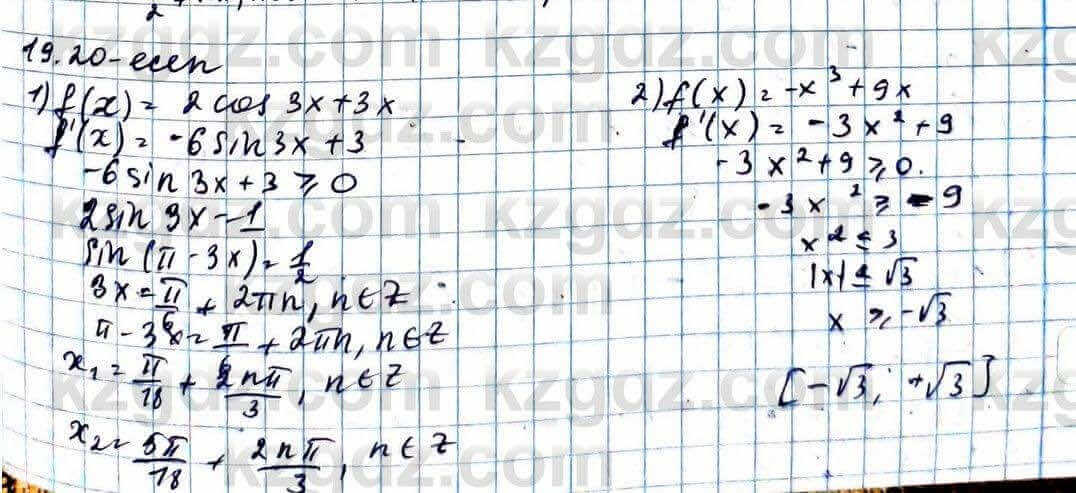 2
19.20-есеп
1) f(x) = 2 cos 3x + 3x
f'(x) = -6 sin 3x + 3
-6 sin 3x + 3 ⩾ 0
2 sin 3x - 1
sin (π - 3x) = 1/2
3x = π/6 + 2πn, n ∈ Z
π - 3x = π/6 + 2πn, n ∈ Z
x₁ = π/18 + 2nπ/3, n ∈ Z
x₂ = 5π/18 + 2nπ/3, n ∈ Z
2) f(x) = -x³ + 9x
f'(x) = -3x² + 9
-3x² + 9 ⩾ 0.
-3x² ⩾ -9
x² ≤ 3
|x| ≤ √3
x ⩾ -√3
[-√3; +√3]
kzgdz.com